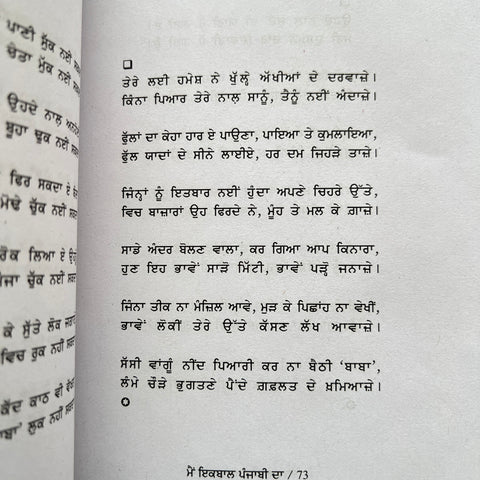 ਪਾਣੀ ਸੁੱਕ ਨਈਂ
ਚੇਤਾ ਮੁੱਕ ਨਈਂ
ਉਹਦੇ ਨਾਲ
ਬੂਹਾ ਢੁਕ ਨਈਂ
ਫਿਰ ਸਕਦਾ ਏ
ਮੋਢੇ ਚੁੱਕ ਨਈਂ
ਰੋਕ ਲਿਆ ਏ
ਚੁੱਕ ਨਈਂ
ਕੇ ਸੁੱਤੇ ਲੋਕ
ਵਿਚ ਰੁਕ ਨਹੀਂ
ਕੱਦ ਕਾਠ ਵੀ
ਲੁਕ ਨਹੀਂ
ਤੇਰੇ ਲਈ ਹਮੇਸ਼ ਨੇ ਖੁੱਲ੍ਹੇ ਅੱਖੀਆਂ ਦੇ ਦਰਵਾਜ਼ੇ।
ਕਿੰਨਾ ਪਿਆਰ ਤੇਰੇ ਨਾਲ ਸਾਨੂੰ, ਤੈਨੂੰ ਨਈਂ ਅੰਦਾਜ਼ੇ।
ਫੁੱਲਾਂ ਦਾ ਕੇਹਾ ਹਾਰ ਏ ਪਾਉਣਾ, ਪਾਇਆ ਤੇ ਕੁਮਲਾਇਆ,
ਫੁੱਲ ਯਾਦਾਂ ਦੇ ਸੀਨੇ ਲਾਈਏ, ਹਰ ਦਮ ਜਿਹੜੇ ਤਾਜ਼ੇ।
ਜਿੰਨ੍ਹਾਂ ਨੂੰ ਇਤਬਾਰ ਨਈਂ ਹੁੰਦਾ ਅਪਣੇ ਚਿਹਰੇ ਉੱਤੇ,
ਵਿਚ ਬਾਜ਼ਾਰਾਂ ਉਹ ਫਿਰਦੇ ਨੇ, ਮੂੰਹ ਤੇ ਮਲ ਕੇ ਗ਼ਾਜ਼ੇ।
ਸਾਡੇ ਅੰਦਰ ਬੋਲਣ ਵਾਲਾ, ਕਰ ਗਿਆ ਆਪ ਕਿਨਾਰਾ,
ਹੁਣ ਇਹ ਭਾਵੇਂ ਸਾੜੋ ਮਿੱਟੀ, ਭਾਵੇਂ ਪੜ੍ਹੋ ਜਨਾਜ਼ੇ।
ਜਿੰਨਾ ਤੀਕ ਨਾ ਮੰਜ਼ਿਲ ਆਵੇ, ਮੁੜ ਕੇ ਪਿਛਾਂਹ ਨਾ ਵੇਖੀਂ,
ਭਾਵੇਂ ਲੋਕੀਂ ਤੇਰੇ ਉੱਤੇ ਕੱਸਣ ਲੱਖ ਆਵਾਜ਼ੇ।
ਸੱਸੀ ਵਾਂਗੂੰ ਨੀਂਦ ਪਿਆਰੀ ਕਰ ਨਾ ਬੈਠੀਂ ‘ਬਾਬਾ’,
ਲੰਮੇ ਚੌੜੇ ਭੁਗਤਣੇ ਪੈਂਦੇ ਗ਼ਫ਼ਲਤ ਦੇ ਖ਼ਮਿਆਜ਼ੇ।
ਮੈਂ ਇਕਬਾਲ ਪੰਜਾਬੀ ਦਾ / 73